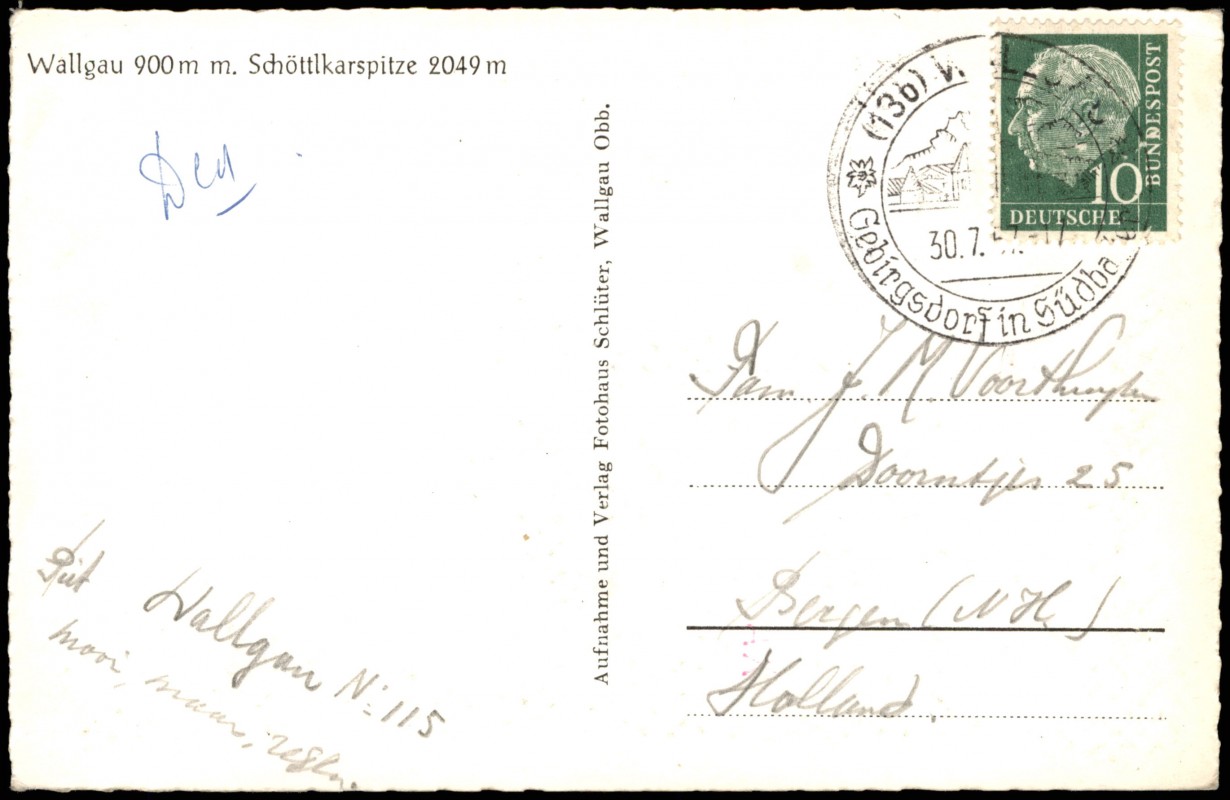 Wallgau 900 m m. Schöttlkarspitze 2049 m
Den
Wallgau No 115
mooi, maar,
Aufnahme und Verlag Fotohaus Schlüter, Wallgau Obb.
(13b)
Gebirgsdorf in Südba
30.7.
10
DEUTSCHE
BUNDESPOST
Fam. J. M. Voorthuysen
Doorntjes 25
Bergen (N H.)
Holland.